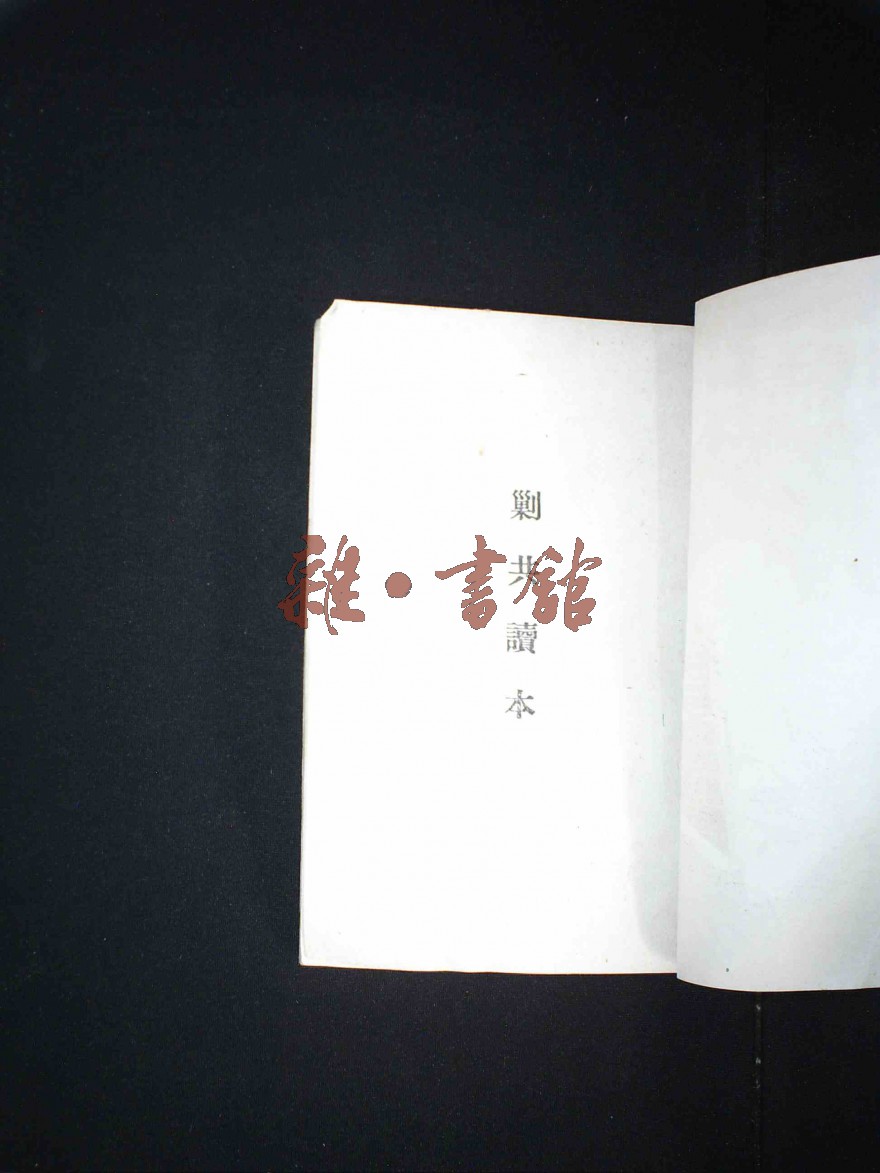 剿共讀本
雜·書館